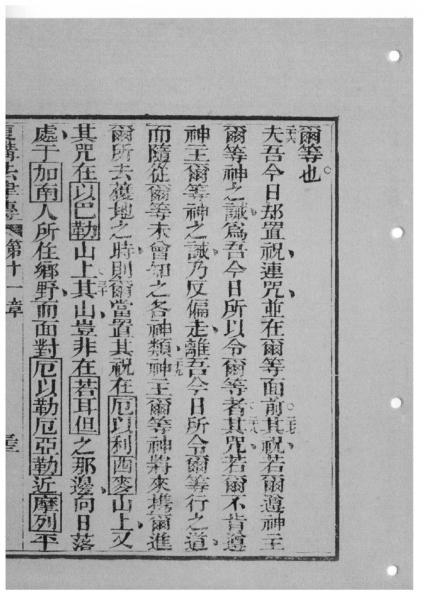 爾等也
夫吾今日却置祝連咒並在爾等面前其祝若爾遵神主
爾等神之誡爲吾今日所以令爾等者其咒若爾不肯遵
神主爾等神之誡乃反偏走離吾今日所令爾等行之道
而隨從爾等未曾知之各神類神主爾等神將來携爾進
爾所去獲地之時則爾當置其祝在厄以利西麥山上又
其咒在以巴勒山上其山豈非在若耳但之那邊向日落
處于加南人所住鄉野而面對厄以勒厄亞勒近摩列平
復講法律傳 第十一章